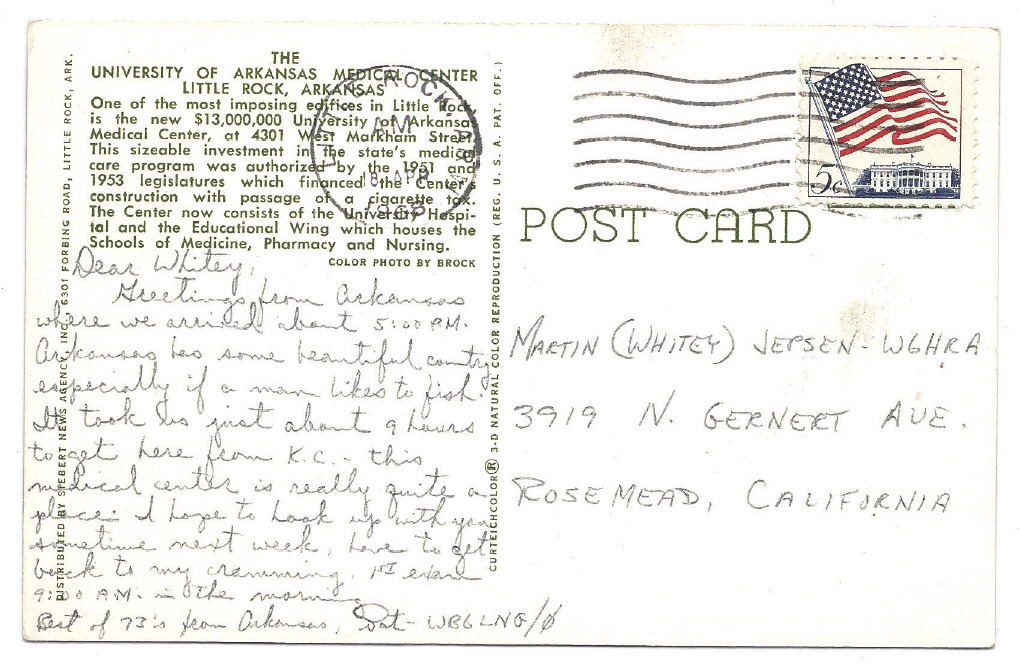 THE
UNIVERSITY OF ARKANSAS MEDICAL CENTER
LITTLE ROCK, ARKANSAS
One of the most imposing edifices in Little Rock,
is the new $13,000,000 University of Arkansas
Medical Center, at 4301 West Markham Street.
This sizeable investment in the state's medical
care program was authorized by the 1951 and
1953 legislatures which financed the Center's
construction with passage of a cigarette tax.
The Center now consists of the University Hospi-
tal and the Educational Wing which houses the
Schools of Medicine, Pharmacy and Nursing.
COLOR PHOTO BY BROCK
Dear Whitey,
Greetings from Arkansas
where we arrived about 5:00 P.M.
Arkansas has some beautiful country
especially if a man likes to fish.
It took us just about 9 hours
to get here from K.C. - this
medical center is really quite a
place. I hope to hook up with you
sometime next week, have to get
back to my cramming, 1st exam
9:00 A.M. in the morning
Best of 73's from Arkansas, WB6LNG/Ø
DISTRIBUTED BY SIEBERT NEWS AGENCY, INC., 6301 FORBING ROAD, LITTLE ROCK, ARK.
CURTEICHCOLOR® 3-D NATURAL COLOR REPRODUCTION (REG. U. S. A. PAT. OFF.)
LITTLE ROCK, ARK.
AM
18 APR
5¢
POST CARD
MARTIN (WHITEY) JEPSEN - W6HRA
3919 N. GERNERT AVE.
ROSEMEAD, CALIFORNIA